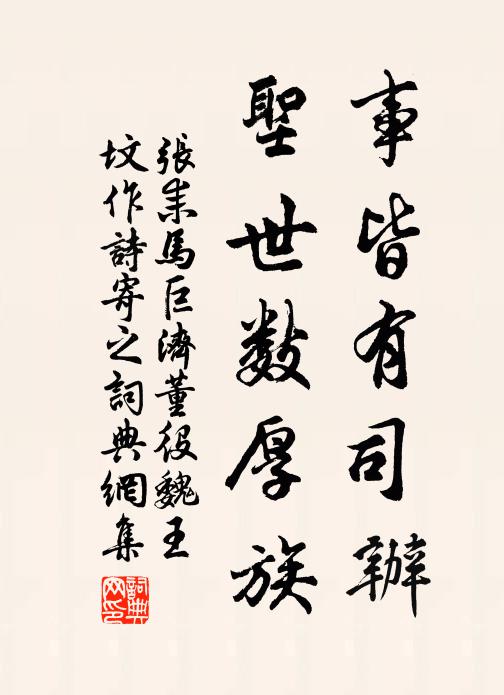 事皆有司辦
聖世數厚族
張耒馬巨濟董役魏王
坟作詩寄之詞典網集
詞典網印